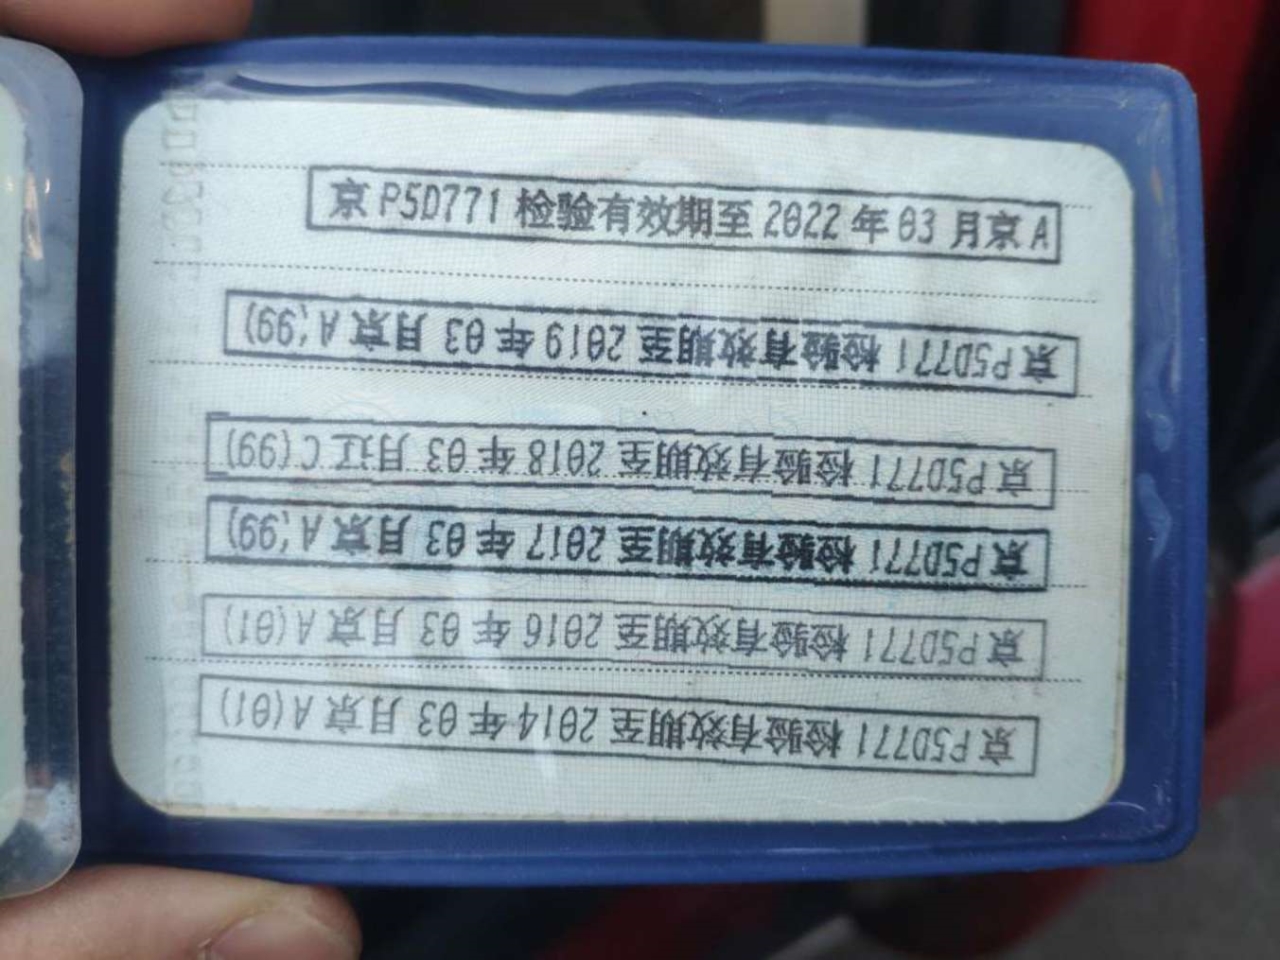 京P5D771 检验有效期至2022年03月京A
京P5D771 检验有效期至2019年03月京A(,99)
京P5D771 检验有效期至2018年03月辽C(99)
京P5D771 检验有效期至2017年03月京A(,99)
京P5D771 检验有效期至2016年03月京A(01)
京P5D771 检验有效期至2014年03月京A(01)